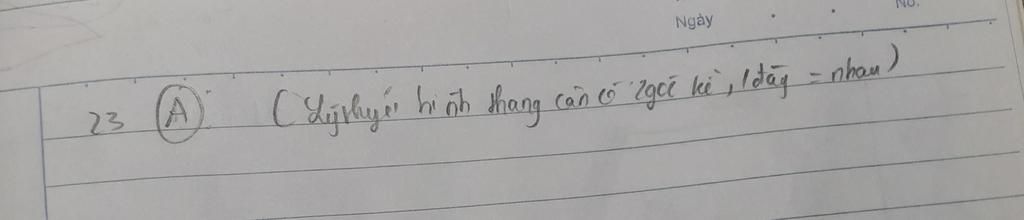 Ngày No.
23 A (Lý thuyết hình thang cân có 2 góc kề, 1 đáy = nhau)